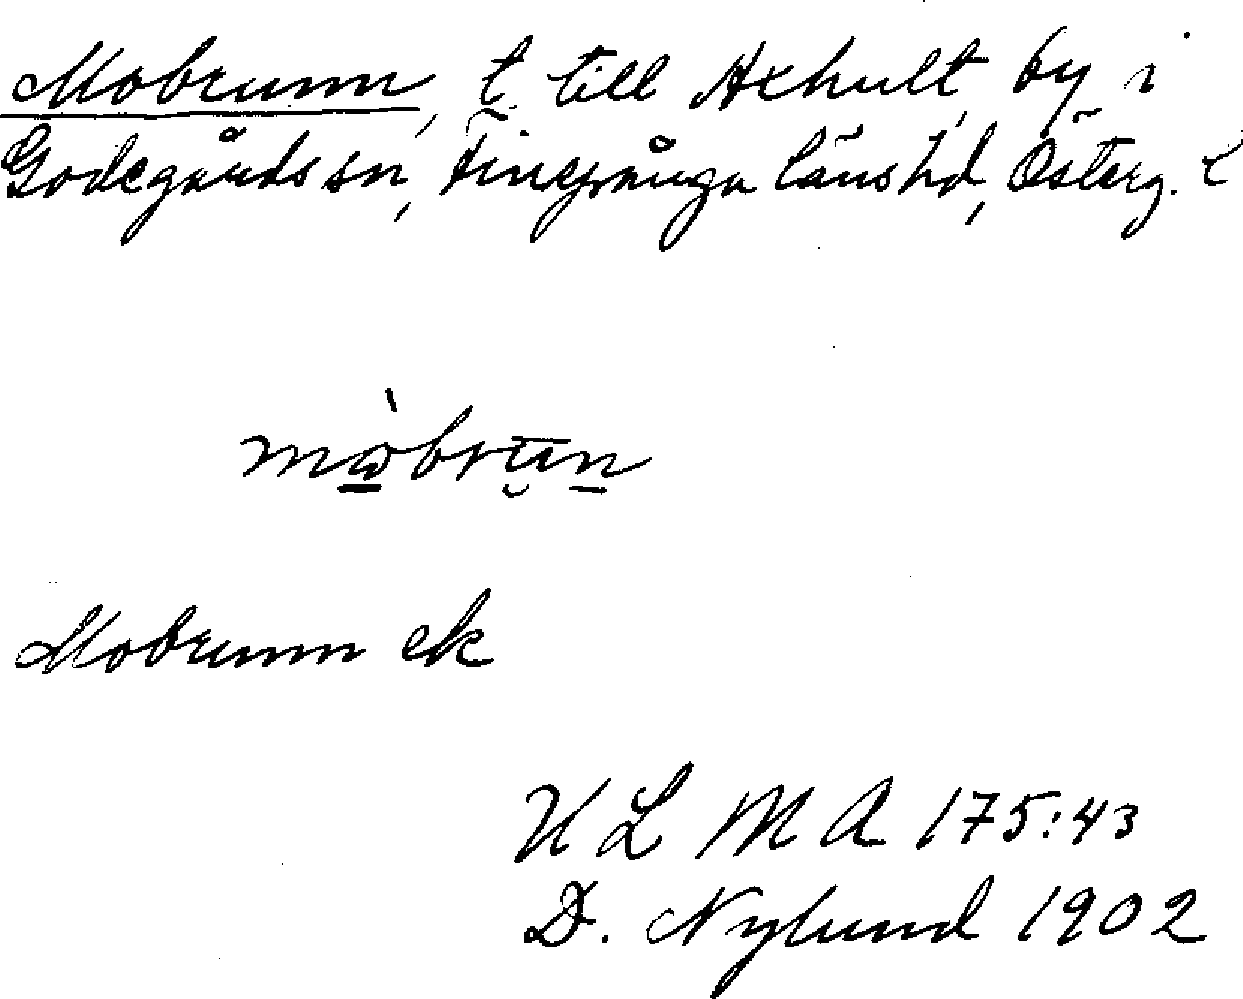 Mobrunn, t. till Axhult, by i
Godegårds sn, Finspånga läns hd, Österg. l
mòbrun
Mobrunn ek
U L M A 175:43
D. Nylund 1902